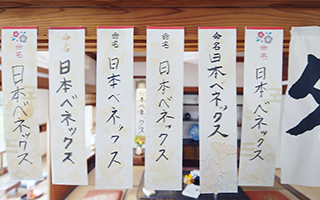 命名
日本ベネックス
命名
日本ベネックス
命名
日本ベネックス
命名
日本ベネックス
命名
日本ベネックス
命名
日本ベネックス